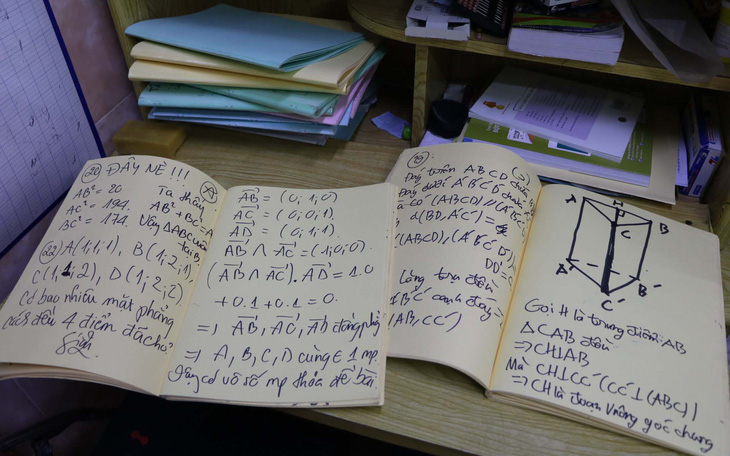 (20) ĐÂY NÈ !!!
AB² = 20 Ta thấy
AC² = 194. AB² + BC² = A
BC² = 174. Vậy ΔABC vuông
tại B
(22) A(1,1,1), B(1;2;1),
C(1;1;2), D(1;2;2)
Có bao nhiêu mặt phẳng
cách đều 4 điểm đã cho
Giải
AB = (0;1;0)
AC = (0;0;1).
AD = (0;1;1).
AB ∧ AC = (1;0;0).
(AB ∧ AC). AD = 1.0
+ 0.1 + 0.1 = 0.
⇒ AB, AC, AD đồng phẳng
⇒ A, B, C, D cùng ∈ 1 mp.
Vậy có vô số mp thỏa đề bài
(19):
Đáy trên ABCD
Đáy dưới A'B'C'D'
có (ABCD) // (A'B'C'
d(BD, A'C') =
(ABCD), (A'B'C'D')
DD' =
Lăng trụ đều
'B'C' cạnh đáy =
(AB, CC')
A H B
C
A' B'
C'
Gọi H là trung điểm AB
ΔCAB đều
⇒ CH⊥AB
Mà CH⊥CC' (CC'⊥(ABC))
⇒ CH là đoạn vuông góc chung